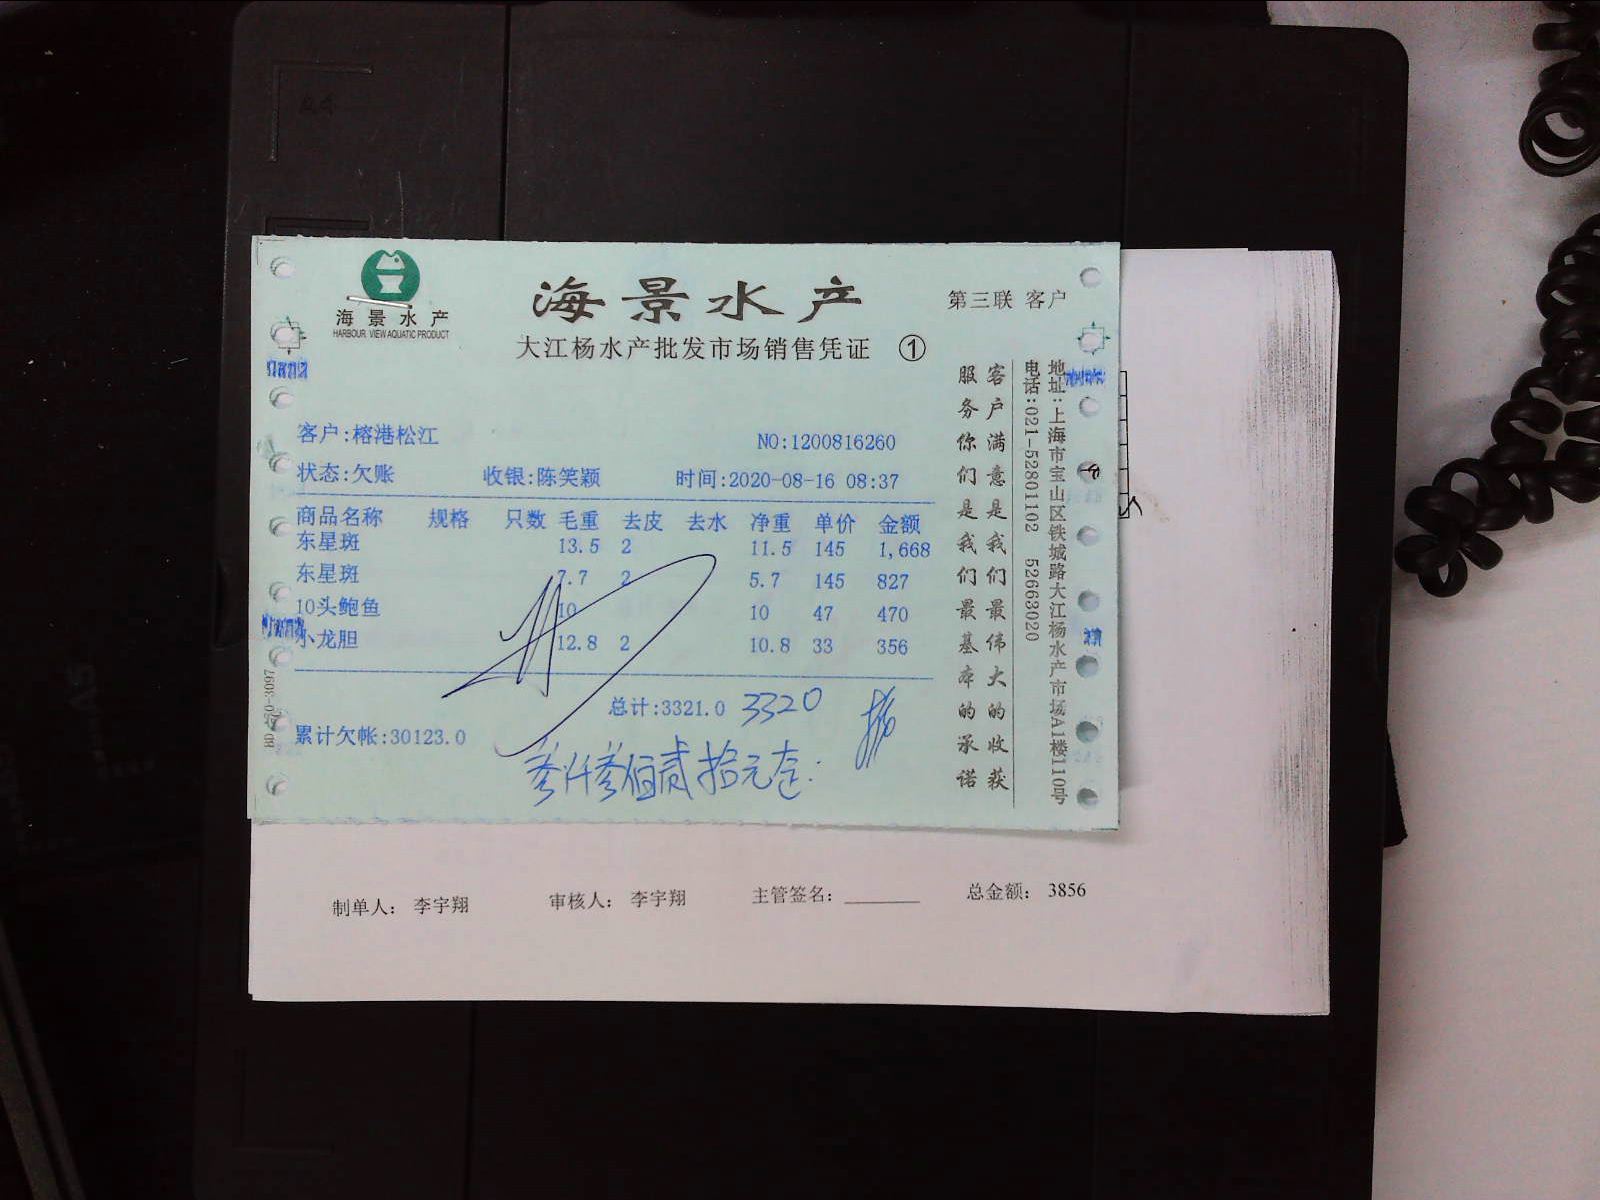 海景水产
HARBOUR VIEW AQUATIC PRODUCT
海景水产
第三联 客户
大江杨水产批发市场销售凭证 ①
客户:榕港松江
NO:1200816260
状态:欠账 收银:陈笑颖 时间:2020-08-16 08:37
商品名称 规格 只数 毛重 去皮 去水 净重 单价 金额
东星斑 13.5 2 11.5 145 1,668
东星斑 7.7 2 5.7 145 827
10头鲍鱼 10 10 47 470
小龙胆 12.8 2 10.8 33 356
总计:3321.0 3320
累计欠帐:30123.0
叁仟叁佰贰拾元整.
客户满意是我们最伟大的收获
服务你们是我们最基本的承诺
地址:上海市宝山区铁城路大江杨水产市场A1楼110号
电话:021-52801102 52663020
制单人: 李宇翔 审核人: 李宇翔 主管签名: 总金额: 3856